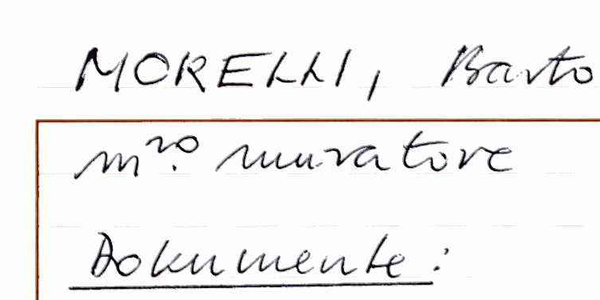 MORELLI, Barto
m.ro muratore
Dokumente: